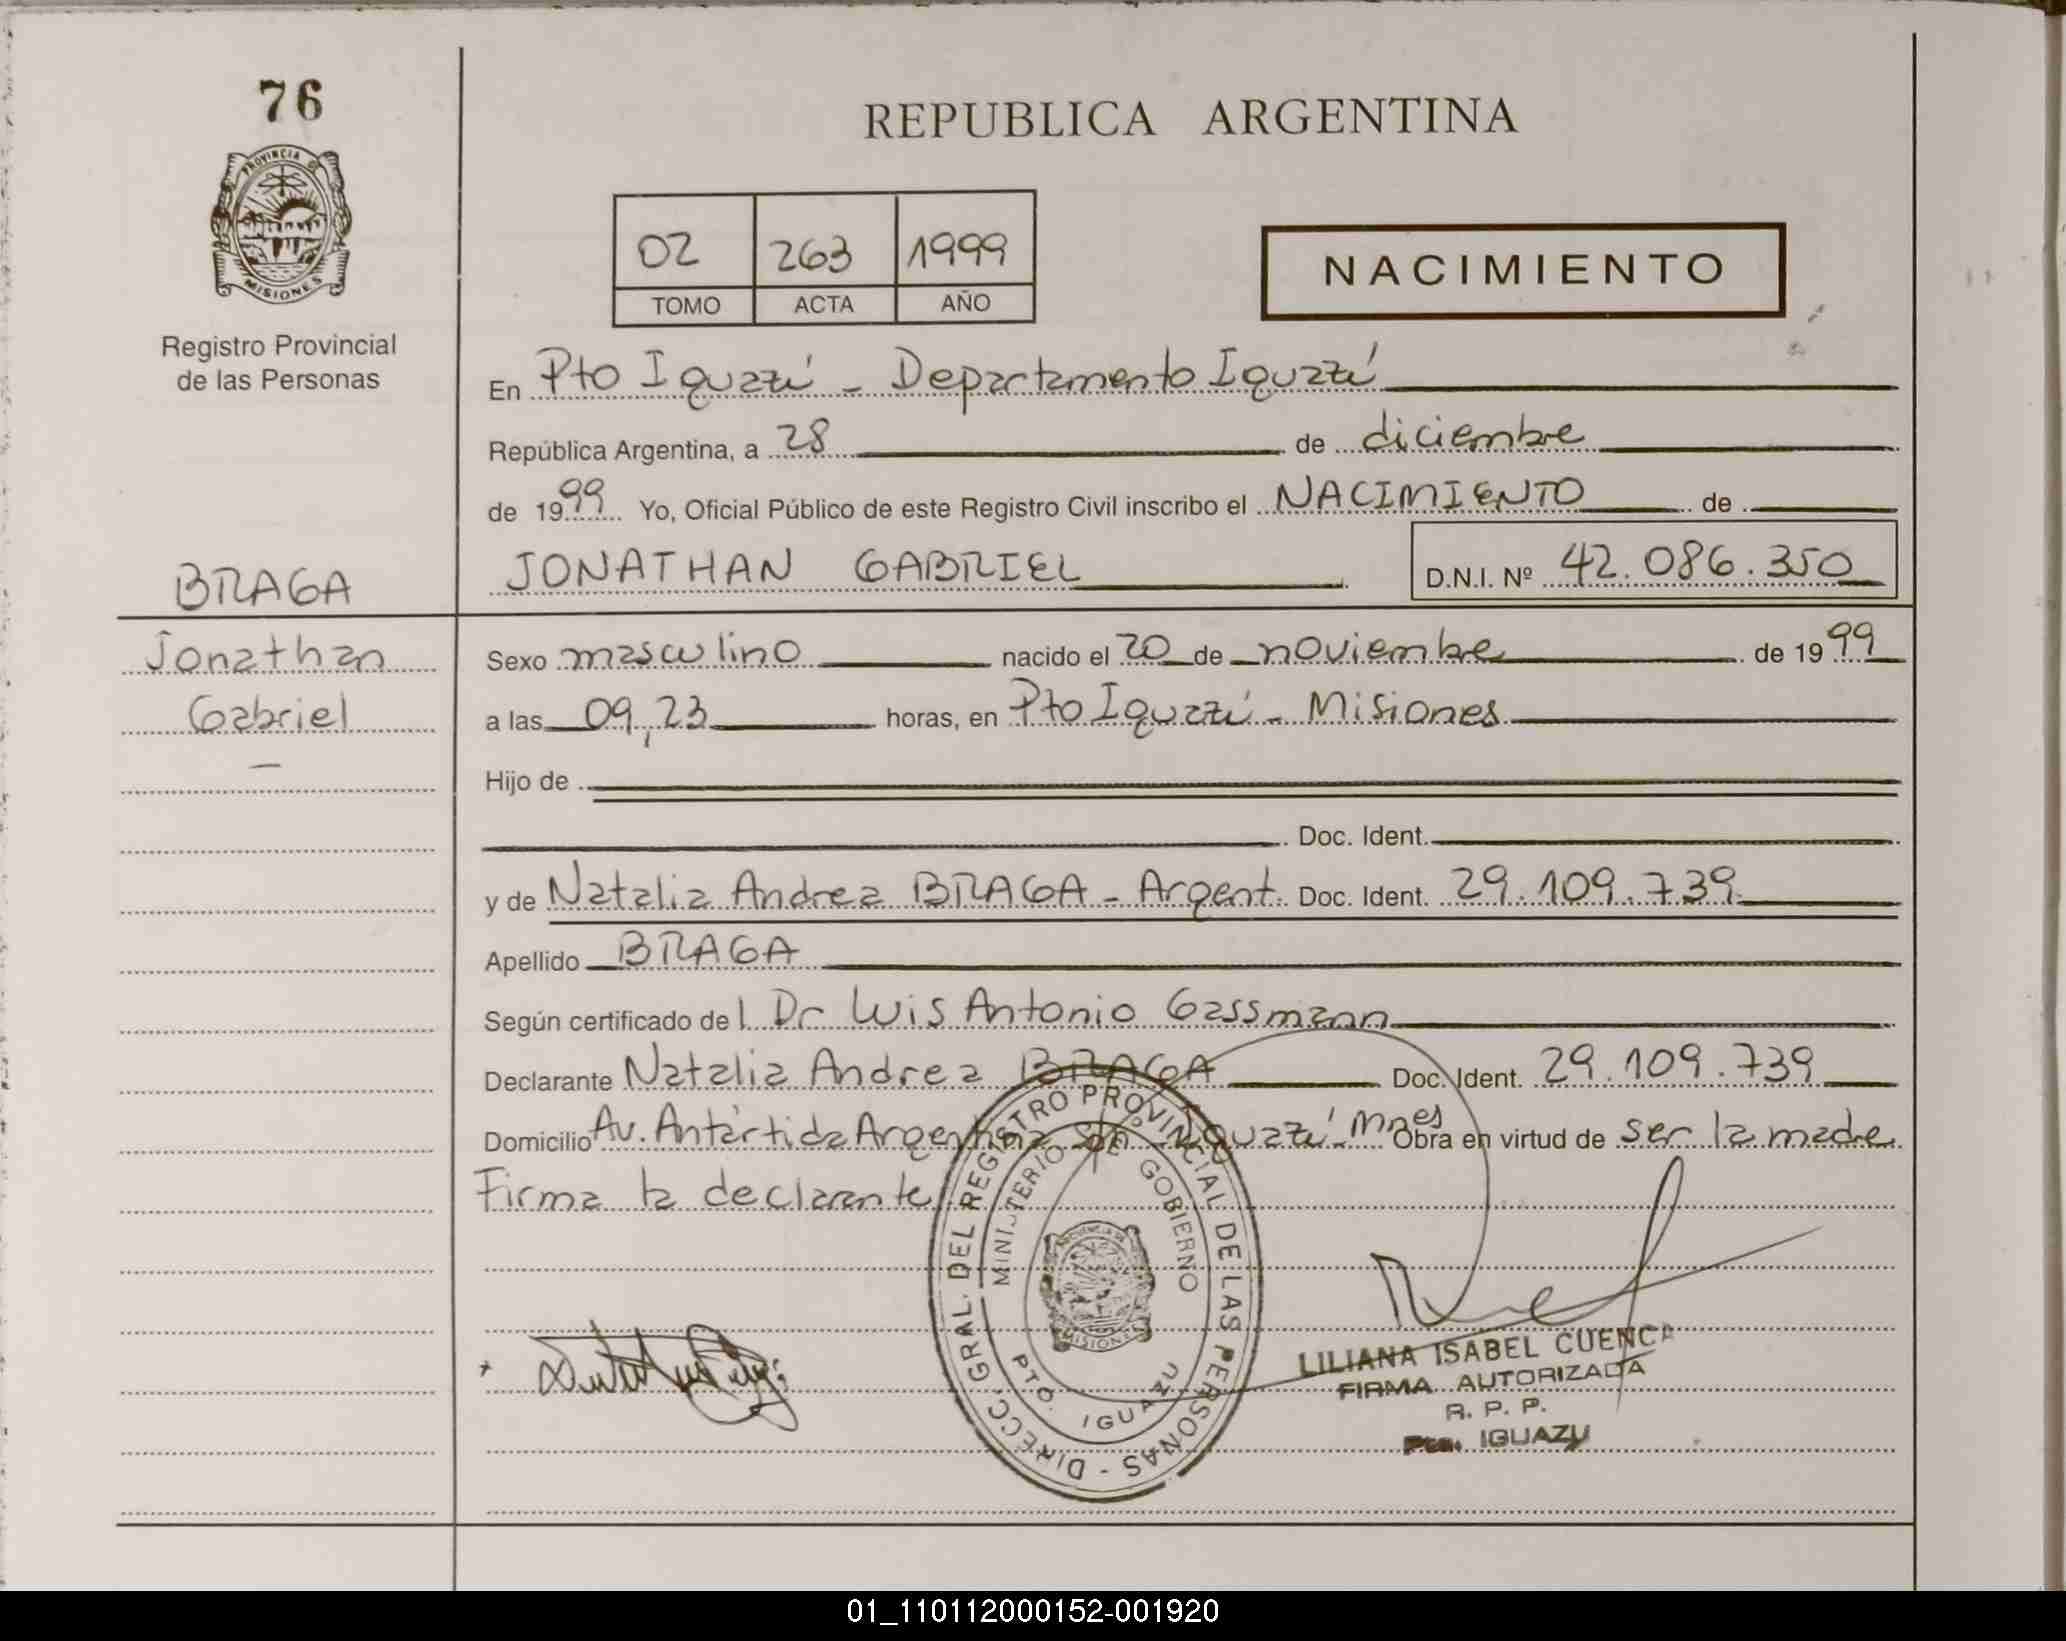 76
PROVINCIA DE
MISIONES
Registro Provincial
de las Personas
REPUBLICA ARGENTINA
02 263 1999
TOMO ACTA AÑO
NACIMIENTO
En Pto Iguazú - Departamento Iguazú
República Argentina, a 28 de diciembre
de 1999 Yo, Oficial Público de este Registro Civil inscribo el NACIMIENTO de
BRAGA
JONATHAN GABRIEL D.N.I. Nº 42.086.350
Jonathan
Gabriel
Sexo masculino nacido el 20 de noviembre de 1999
a las 09,23 horas, en Pto Iguazú - Misiones
Hijo de
Doc. Ident.
y de Natalia Andrea BRAGA - Argent. Doc. Ident. 29.109.739
Apellido BRAGA
Según certificado del Dr Luis Antonio Gassmann
Declarante Natalia Andrea BRAGA Doc. Ident. 29.109.739
Domicilio Av. Antártida Argentina s/nº Iguazú Mnes Obra en virtud de ser la madre
Firma la declarante
DIRECC. GRAL. DEL REGISTRO PROVINCIAL DE LAS PERSONAS -
MINISTERIO DE GOBIERNO
MISIONES
PTO. IGUAZU
LILIANA ISABEL CUENCA
FIRMA AUTORIZADA
R. P. P.
Pto. IGUAZU
01_110112000152-001920